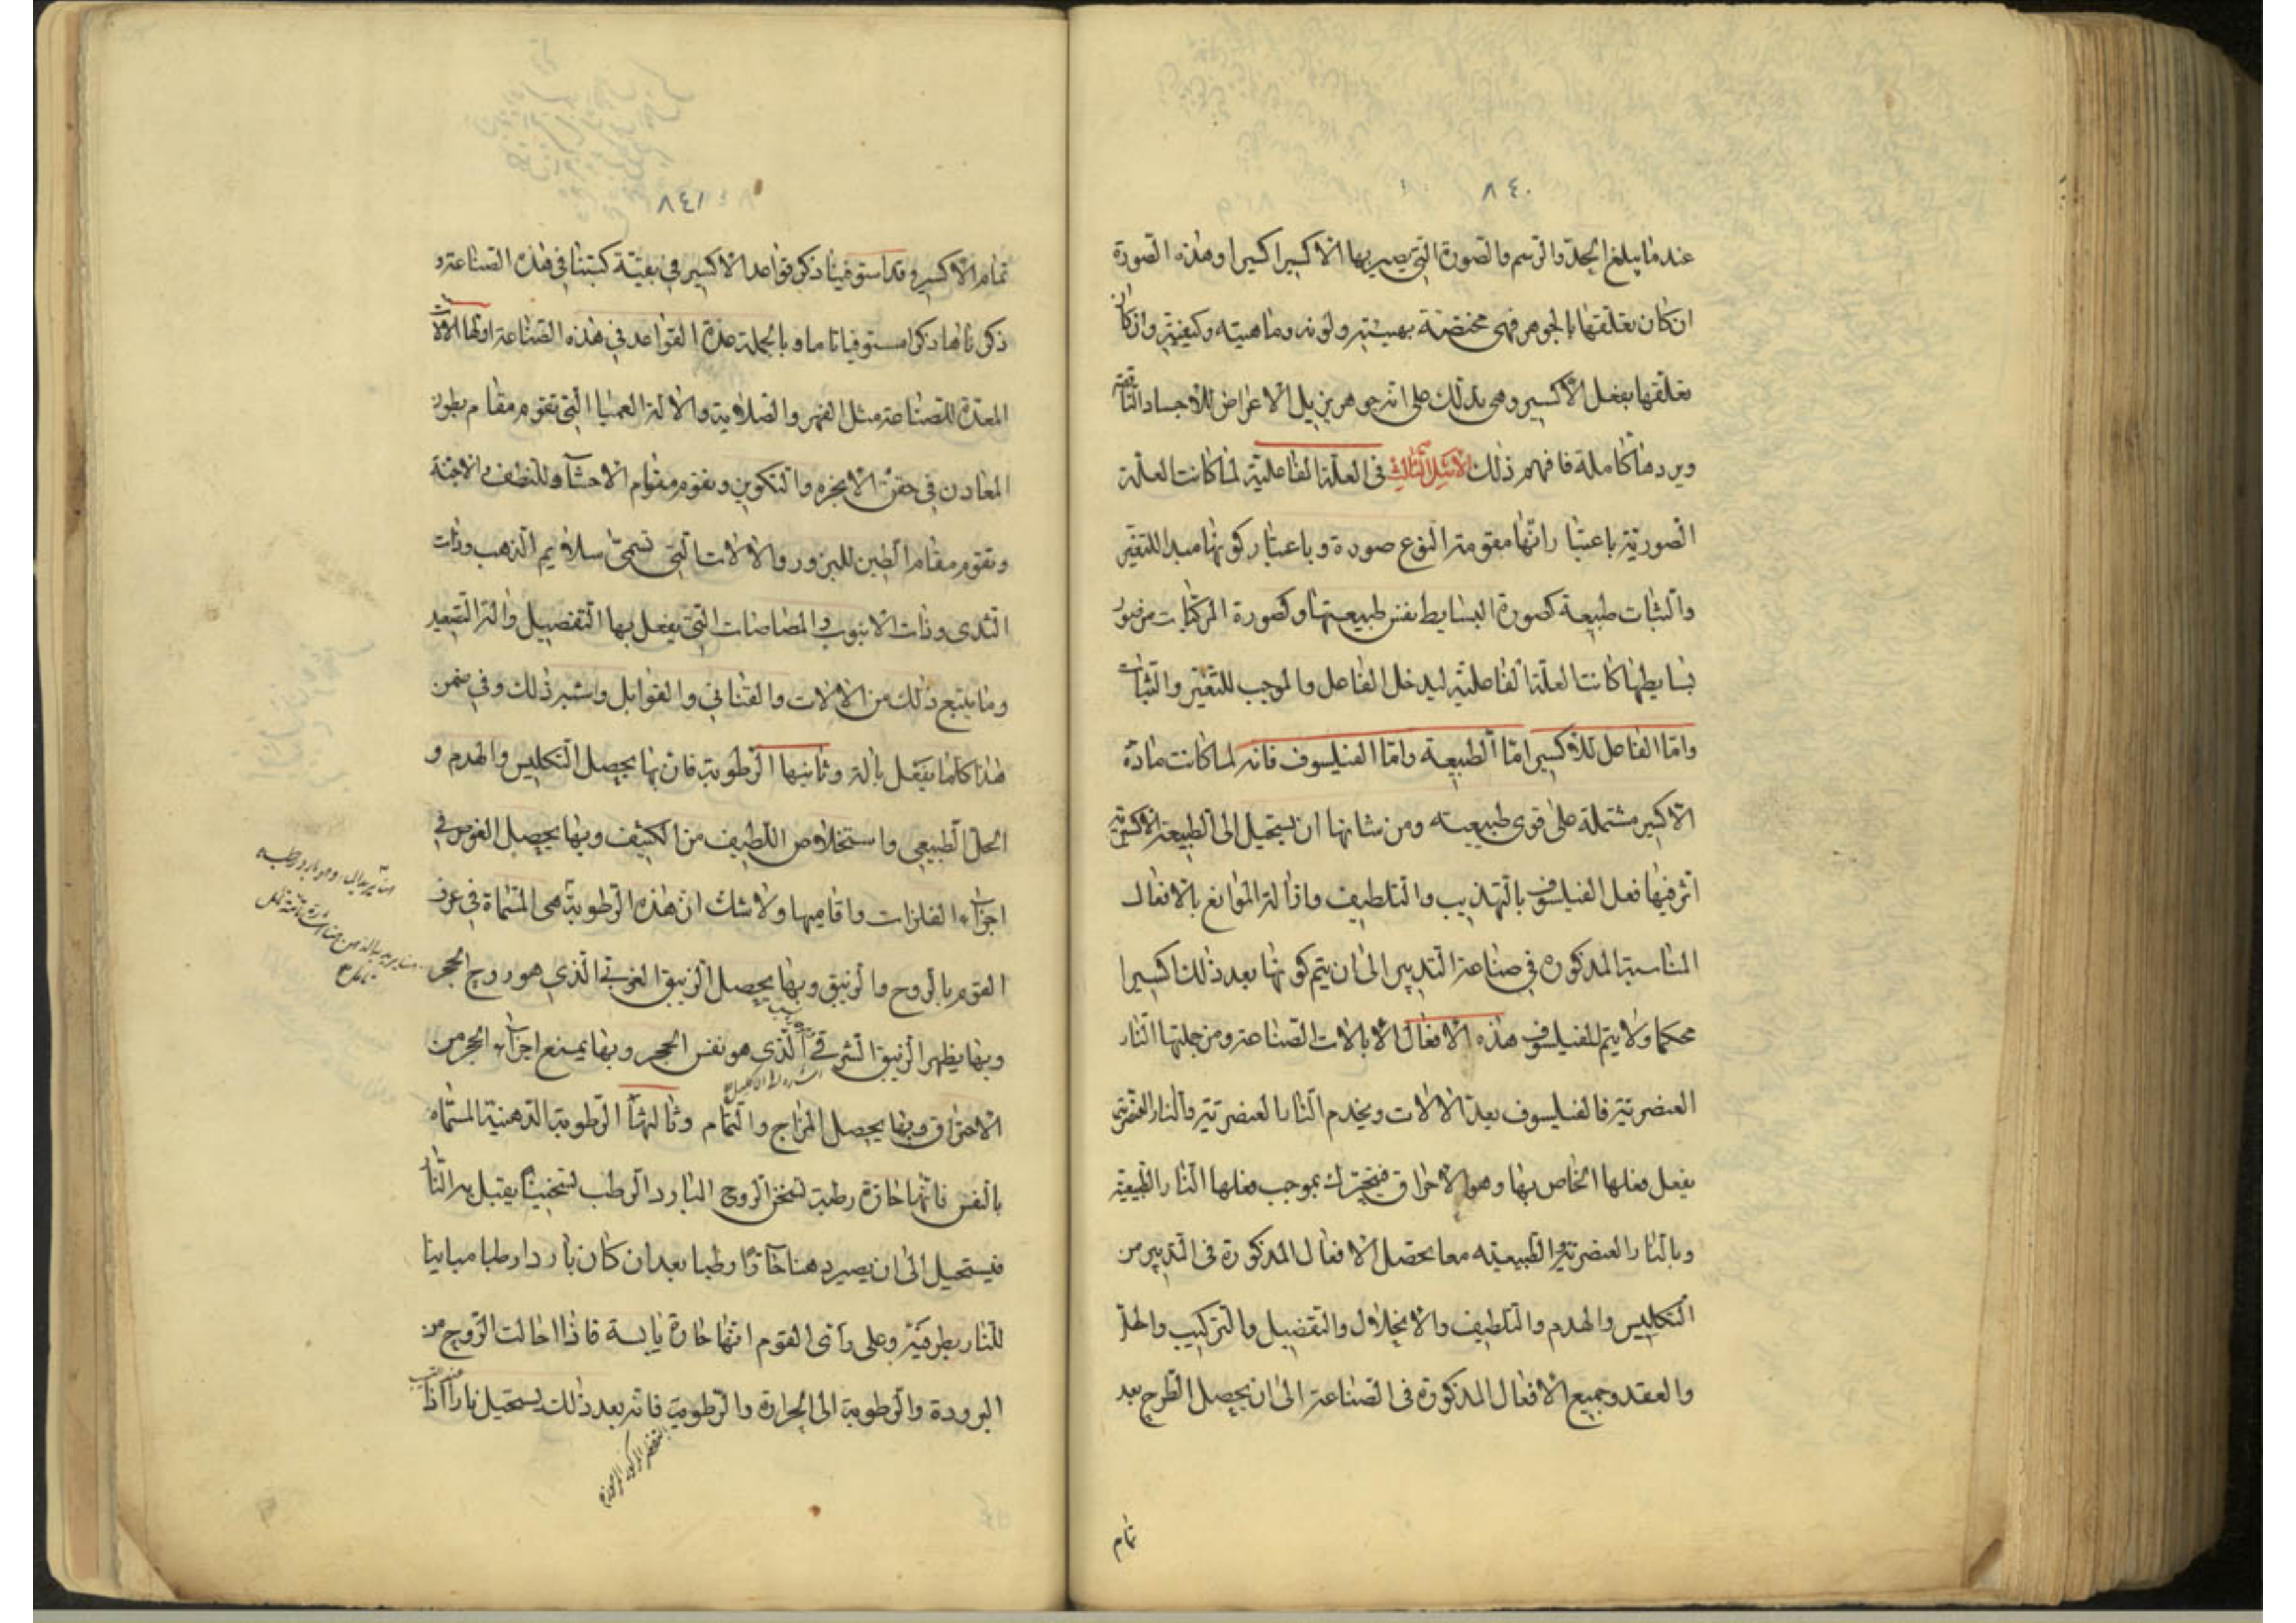 ٨٤٠
عندما يبلغ الحد والرسم والصورة التي يصير بها الاكسير اكسيرا وهذه الصورة
ان كان تعلقها بالجوهر فهي مختصة بهيئته ولونه وماهيته وكيفيته وان كان
تعلقها بفعل الاكسير وهي بذلك على انه جوهر يزيل الاعراض للاجساد الناقصة
ويردها كاملة فافهم ذلك الاسّ الثالث في العلة الفاعلية لما كانت العلة
الصورية باعتبار انها مقومة النوع صورة وباعتبار كونها مبدا للتغير
والثبات طبيعة كصورة البسايط نفس طبيعتها وكصورة المركبات من صور
بسايطها كانت العلة الفاعلية ليدخل الفاعل والموجب للتغير والثبات
واما الفاعل للاكسير اما الطبيعة واما الفيلسوف فانه لما كانت مادة
الاكسير مشتملة على قوى طبيعية ومن شانها ان يستحيل الى الطبيعة الاكسيرية
اثر فيها فعل الفيلسوف بالتهذيب والتلطيف وازالة الموانع بالافعال
المناسبة المذكوره في صناعة التدبير الى ان يتم كونها بعد ذلك اكسيرا
محكما ولا يتم للفيلسوف هذه الافعال الا بالات الصناعة ومن جملتها النار
العنصرية فالفيلسوف يعد الالات ويخدم النار العنصرية والنار العنصرية
يفعل فعلها الخاص بها وهو الاحراق فيتحرك بموجب فعلها النار الطبيعية
وبالنار العنصرية والطبيعيه معا يحصل الافعال المذكورة في التدبير من
التكليس والهدم والتلطيف والانحلال والتفصيل والتركيب والحل
والعقد وجميع الافعال المذكورة في الصناعة الى ان يحصل الطرح بعد
تمام
٨٤١
تمام الاكسير وقد استوفينا ذكر قواعد الاكسير في بقية كتبنا في هذه الصناعة و
ذكرناها ذكرا مستوفيا تاما وبالجملة عدة القواعد في هذه الصناعة اولها الالات
المعدة للصناعة مثل الفهر والصلاية والالة العميا التي تقوم مقام بطون
المعادن في حقن الابخره والتكوين وتقوم مقام الاحشاء للنطف والاجنة
وتقوم مقام الطين للبزور والالات التي تسمى سلاليم الذهب وذات
الثدى وذات الانبوب والمصاصات التي يفعل بها التفصيل والة التصعيد
وما يتبع ذلك من الالات والقناني والقوابل وشبه ذلك وفي ضمن
هذا كلما يفعل بالة وثانيها الرطوبة فان بها يحصل التكليس والهدم و
الحل الطبيعي واستخلاص اللطيف من الكثيف وبها يحصل الغوص في
اجزاء الفلزات واقاميها ولا شك ان هذه الرطوبة هي المسماة في عرف
القوم بالروح والزئبق وبها يحصل الزيبق الغربي الذي هو روح الحجر
وبها يظهر الزيبق الشرقي الذي هو نفس الحجر وبها يمنع اجزاء الحجر من
الاحتراق وبها يحصل المزاج والتمام وثالثها الرطوبة الدهنية المسماه
بالنفس فانها حارة رطبة تسخن الروح البارد الرطب تسخينا يقبل به النار
فيستحيل الى ان يصير دهنا حارا رطبا بعد ان كان باردا رطبا مباينا
للنار بطرفيه وعلى رأى القوم انها حارة يابسة فاذا احالت الروح من
البرودة والرطوبة الى الحرارة والرطوبة فانه بعد ذلك يستحيل نارا اذا